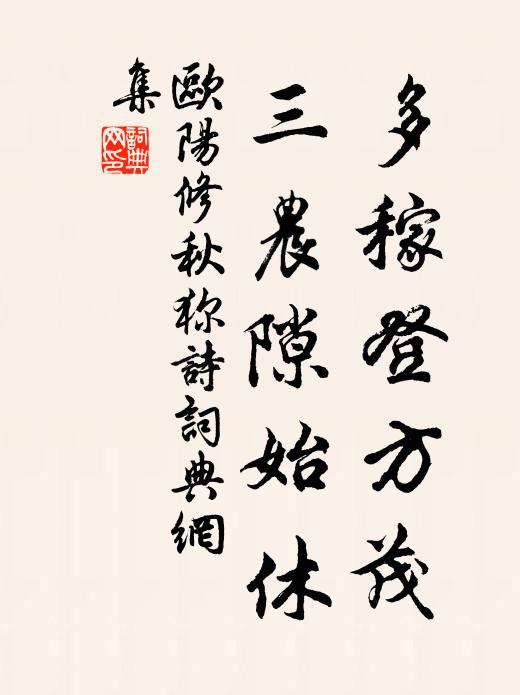 多稼登方茂
三農隙始休
歐陽修秋狝詩詞典網
集
詞典網印